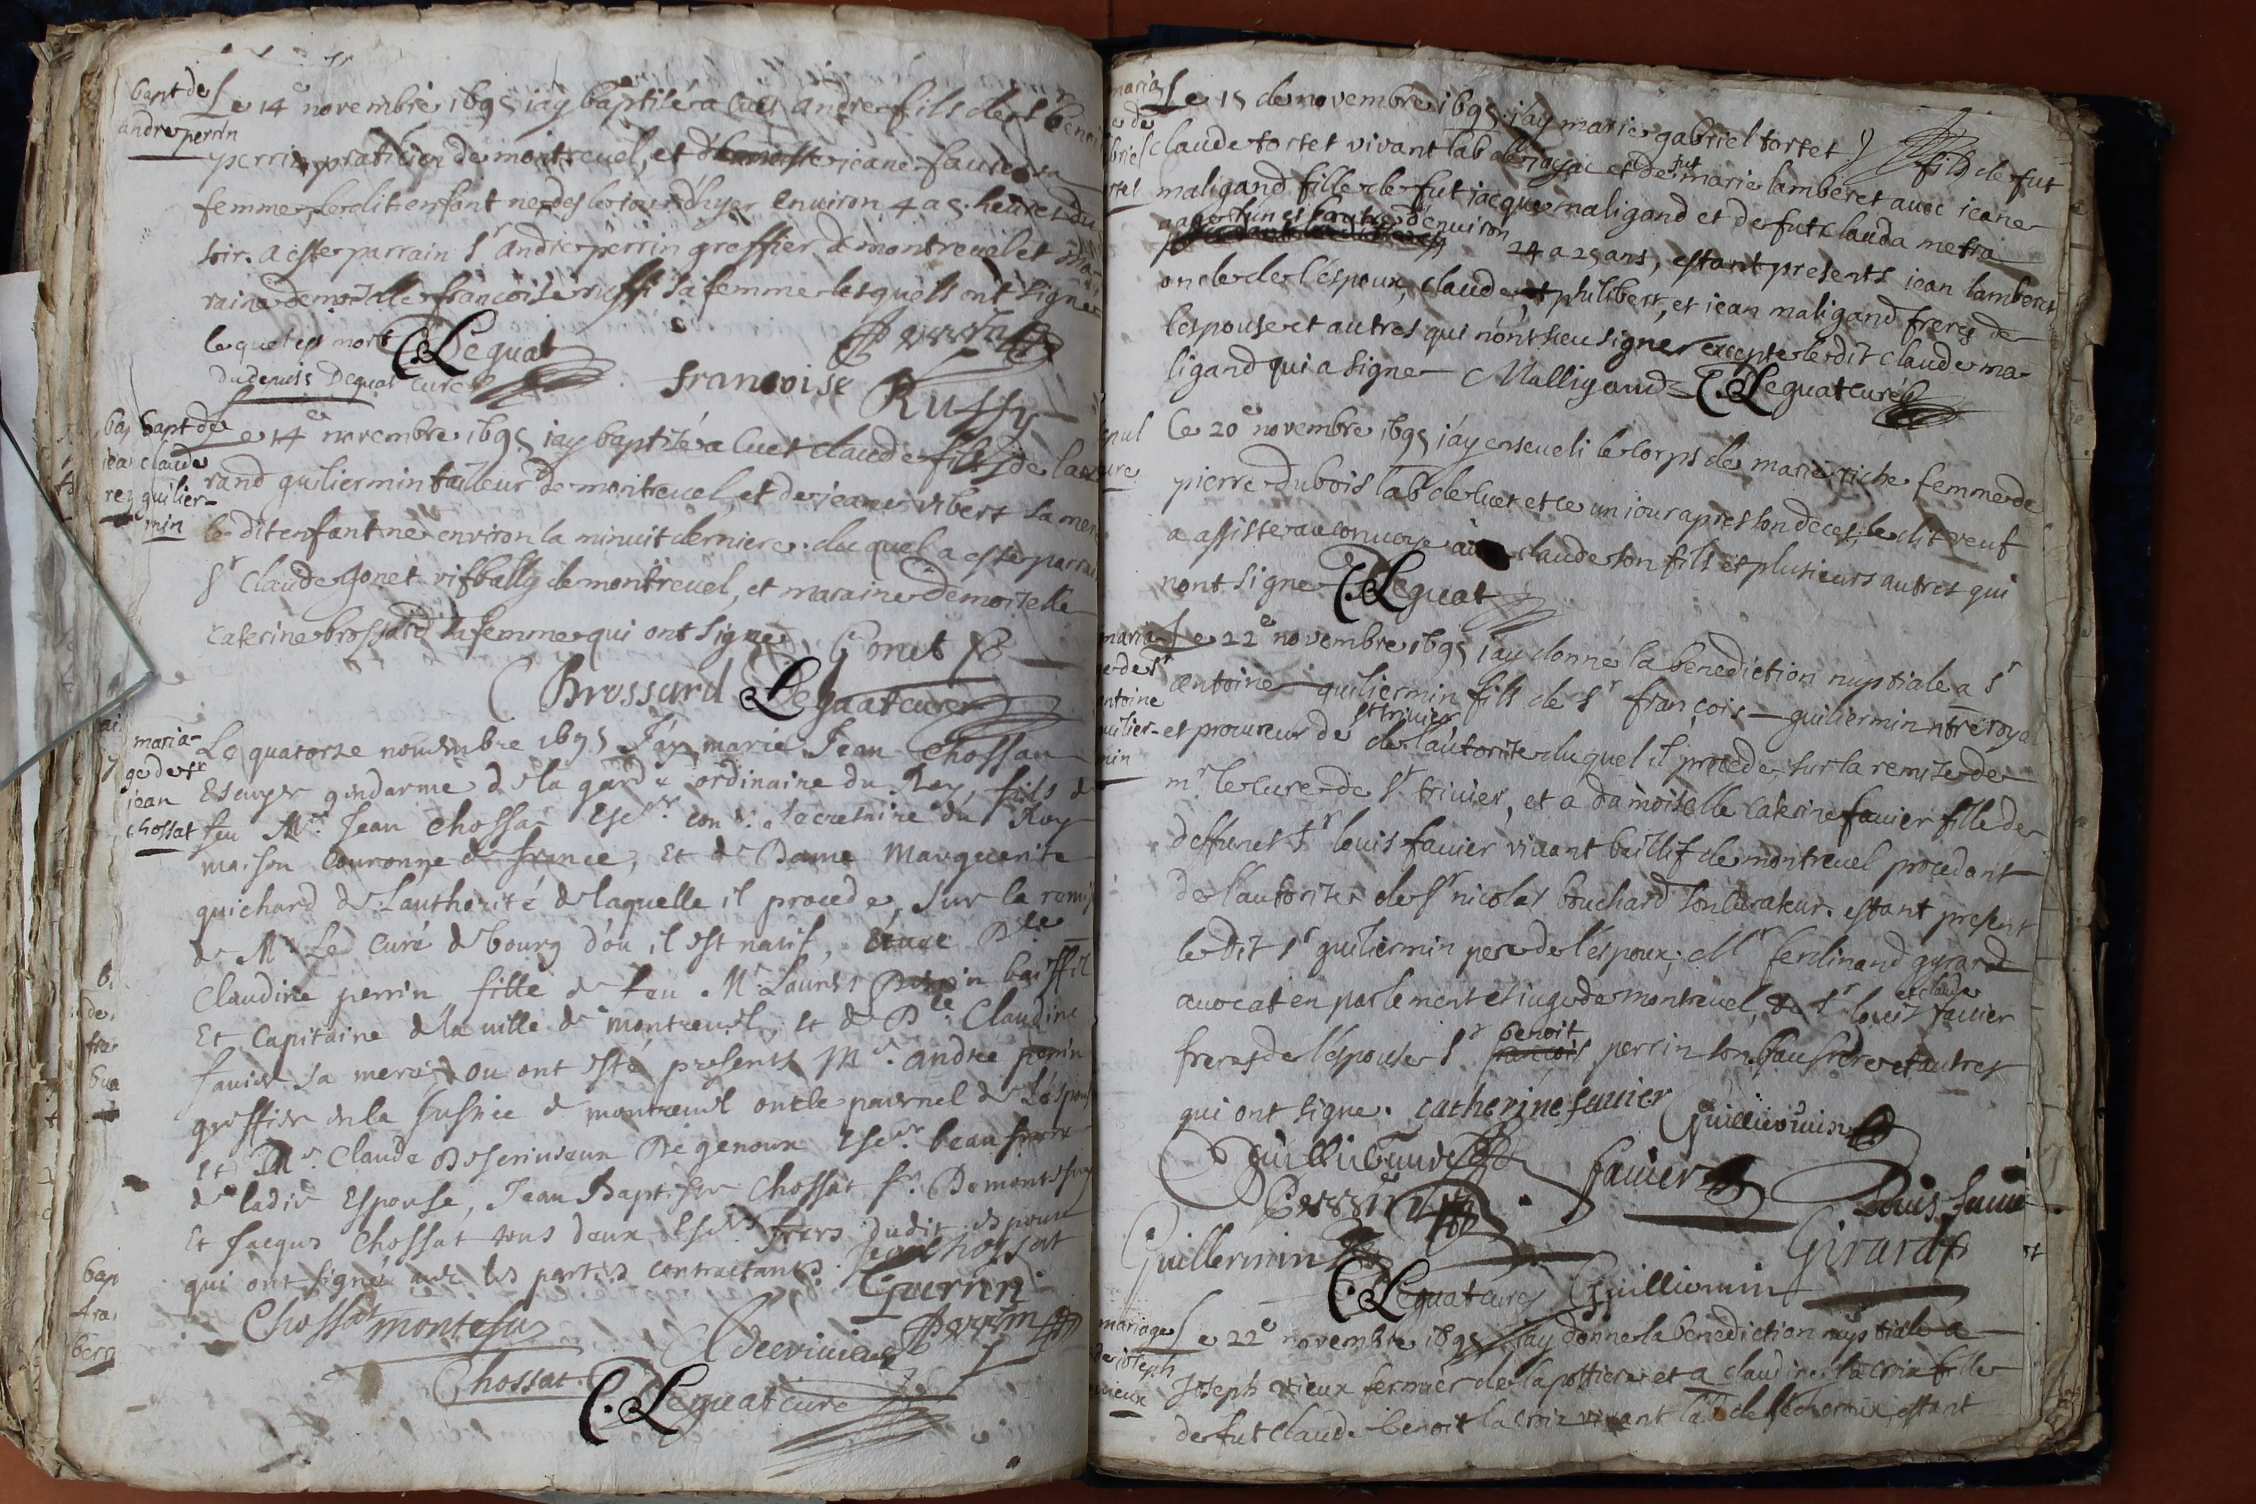 bapt de
andre perrin
Le 14e novembre 1695 iay baptisé a cuet andre fils de Sr benoit
perrin praticien de montrevel, et demoiselle jeane favier sa
femme ledit enfant ne des le iour d'hyer environ 4 a 5 heures du
soir. a esté parrain Sr andre perrin greffier de montrevel et ma-
raine demoiselle francoise russi sa femme lesquels ont signé
lequel est mort C. Lequat Perrin
du depuis Dequat curé francoise Russy
bapt de
claude
guilier-
min
Le 14e novembre 1695 iay baptisé a cuet claude fils de lau
rand guiliermin tailleur de montrevel, et de jeane vibert sa
le dit enfant né environ la minuit derniere. duquel a esté parrain
Sr Claude gonet de montrevel, et maraine demoiselle
caterine brossard sa femme qui ont signé Gonet
Brossard Lequat curé
maria-
ge de Sr
jean
chossat
Le quatorze nouembre 1695 J'ay marié Jean Chossat
Escuyer gendarme de la garde ordinaire du Roy, fils de
feu Mr. Jean chossat Escr. con.r secretaire du Roy
maison Couronne de france, Et de Dame Marguerite
guichard de Lauthorité de laquelle il procede, Sur la remise
de Mr. Le curé de bourg d'ou il est natif, avec Dlle
Claudine perrin fille de feu Mr Laurent Perrin bailliff
Et Capitaine de la ville de montreuel, et de Dlle Claudine
favier sa mere, ou ont esté presents Mr. andre perrin
greffier en la Justice de montreuel oncle paternel de L'espouse
et Mr. Claude De genoux Escr. beau frere
de ladie Espouse, Jean Baptiste Chossat Sr. De montesuy
Et Jacques Chossat tous deux Escrs freres dudit espoux
qui ont signé avec les parties contractantes. Jean Chossat
Perrin
Chossat montesuy Perrin
Chossat
C. Lequat curé
maria
ge de
gabriel
tortet
Le 15 de novembre 1695 j'ay marie gabriel tortet fils de fut
claude tortet vivant lab de et de fut marie lamberet avec ieane
maligand fille de fut iacque maligand et de fut clauda metra
aages l'un et l'autre d'environ 24 a 25 ans, estant presents iean lamberet
oncle de l'espoux, claude, philibert, et iean maligand freres de
lespouse et autres qui n'ont sceu signer excepté ledit claude ma-
ligand qui a signe Malligand C. Lequat curé
Le 20e novembre 1695 i'ay enseveli le corps de marie riche femme de
pierre dubois lab de cuet et ce un iour apres son deces, le dit veuf
a assisté au convoye claude son fils et plusieurs autres qui
nont signé C. Lequat
maria-
ge de Sr
antoine
guilier-
min
Le 22e novembre 1695 i'ay donné la benediction nuptiale a Sr
antoine guiliermin fils de Sr françois guiliermin ntre royal
et procureur de St trivier de l'autorite duquel il procede sur la remise de
mr. le cure de St trivier, et a damoiselle caterine favier fille de
deffunct Sr louis favier vivant baillif de montrevel procedant
de l'autorite de Sr nicolas bouchard son curateur. estant present
le dit Sr guiliermin pere de l'espoux, Mr ferdinand gyrard
avocat en parlement et iuge de montrevel, Sr louis et claude favier
freres de l'espouse Sr benoit perrin son beaufrere et autres
qui ont signe. catherine favier Guilliermin
favier Louis favier
Perrin
Guillermin Girard
C. Lequat curé Guilliermin
mariage
de ioseph
vieux
Le 22e novembre 1695 i'ay donné la benediction nuptiale a
Joseph vieux fermier de la pottiere et a claudine lacroix fille
de fut claude benoit la croix vivant lab de estant